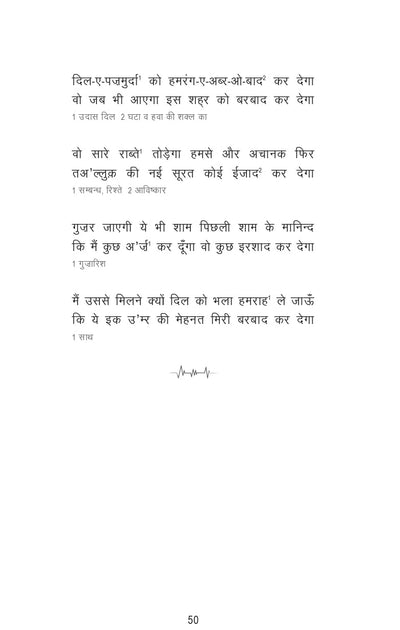 दिल-ए-पज़मुर्दा¹ को हमरंग-ए-अब्र-ओ-बाद² कर देगा
वो जब भी आएगा इस शहर को बरबाद कर देगा
1 उदास दिल 2 घटा व हवा की शक्ल का
वो सारे राब्ते¹ तोड़ेगा हमसे और अचानक फिर
तअ'ल्लुक़ की नई सूरत कोई ईजाद² कर देगा
1 सम्बन्ध, रिश्ते 2 आविष्कार
गुज़र जाएगी ये भी शाम पिछली शाम के मानिन्द
कि मैं कुछ अ'र्ज़¹ कर दूँगा वो कुछ इरशाद कर देगा
1 गुज़ारिश
मैं उससे मिलने क्यों दिल को भला हमराह¹ ले जाऊँ
कि ये इक उ'म्र की मेहनत मिरी बरबाद कर देगा
1 साथ
50